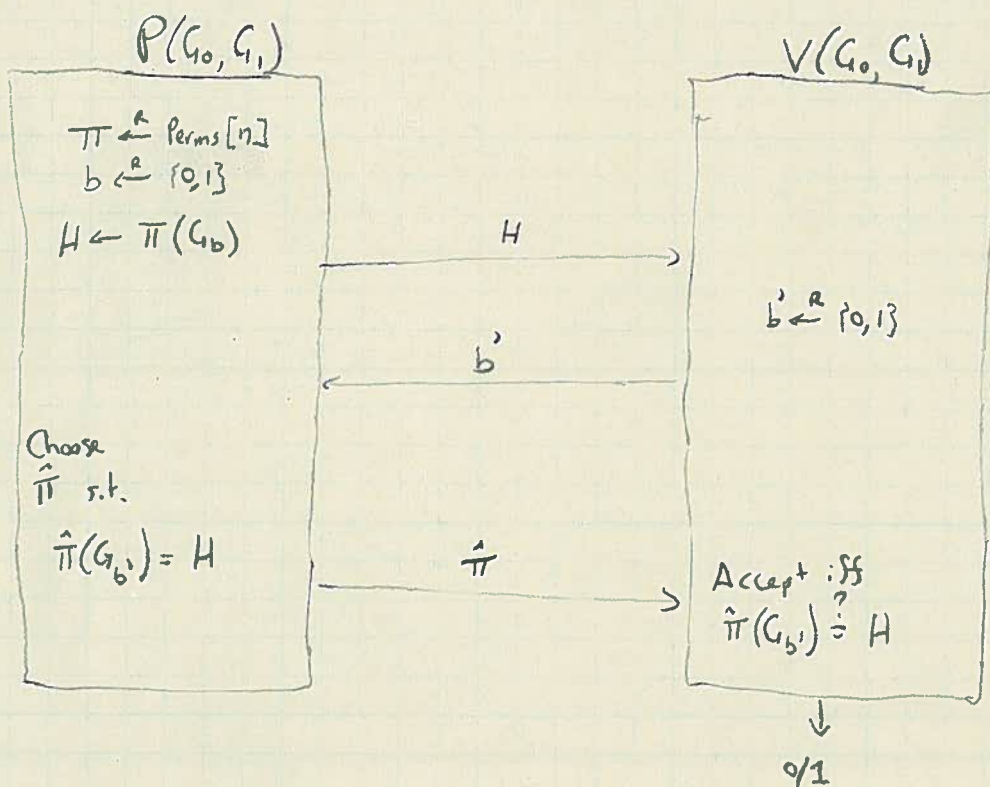 P(G₀, G₁)
π ←ᴿ Perms[n]
b ←ᴿ {0,1}
H ← π(G_b)
H
b' ←ᴿ {0,1}
b'
Choose
π̂ s.t.
π̂(G_b') = H
π̂
V(G₀, G₁)
Accept iff
π̂(G_b') ≟ H
0/1